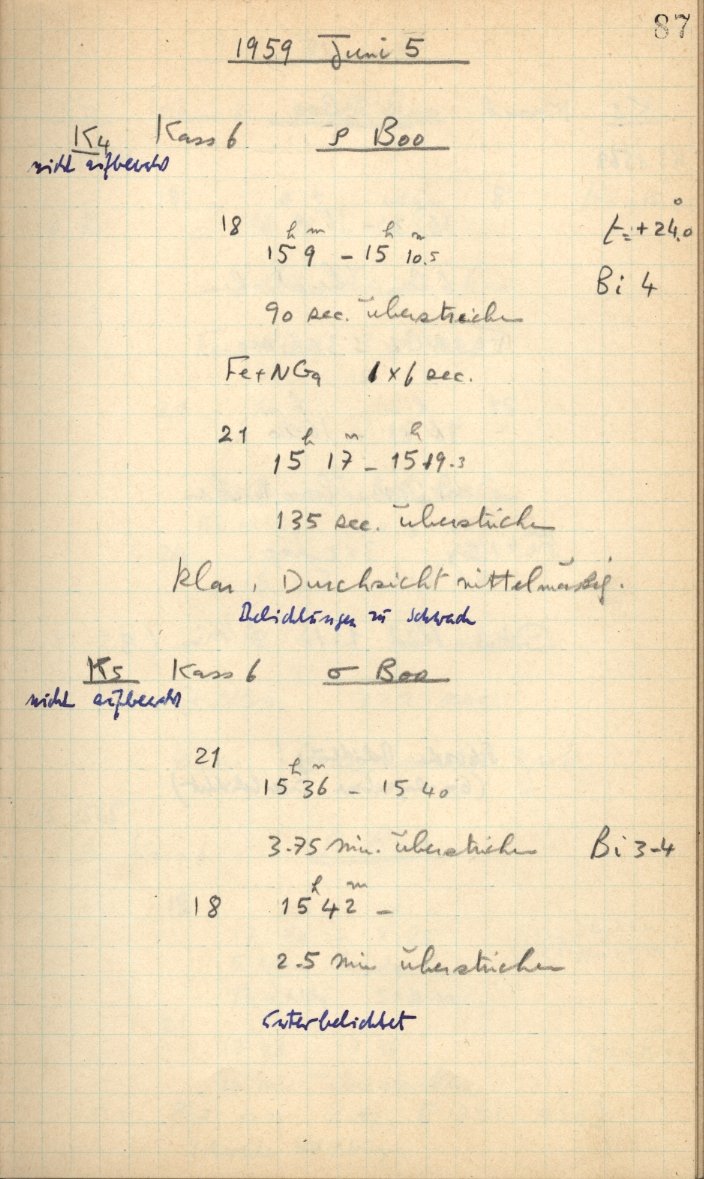 87
1959 Juni 5
K4 Kass 6 ρ Boo
nicht aufbewahrt
18 15h 9m – 15h 10.5m t = +24.0°
Bi 4
90 sec. überstrichen
Fe+NGa 1×6 sec.
21 15h 17m – 15h 19.3
135 sec. überstrichen
klar, Durchsicht mittelmässig.
Belichtungen zu schwach
K5 Kass 6 σ Boo
nicht aufbewahrt
21 15h 36m – 15 40
3.75 min. überstrichen Bi 3-4
18 15h 42m –
2.5 min überstrichen
unterbelichtet